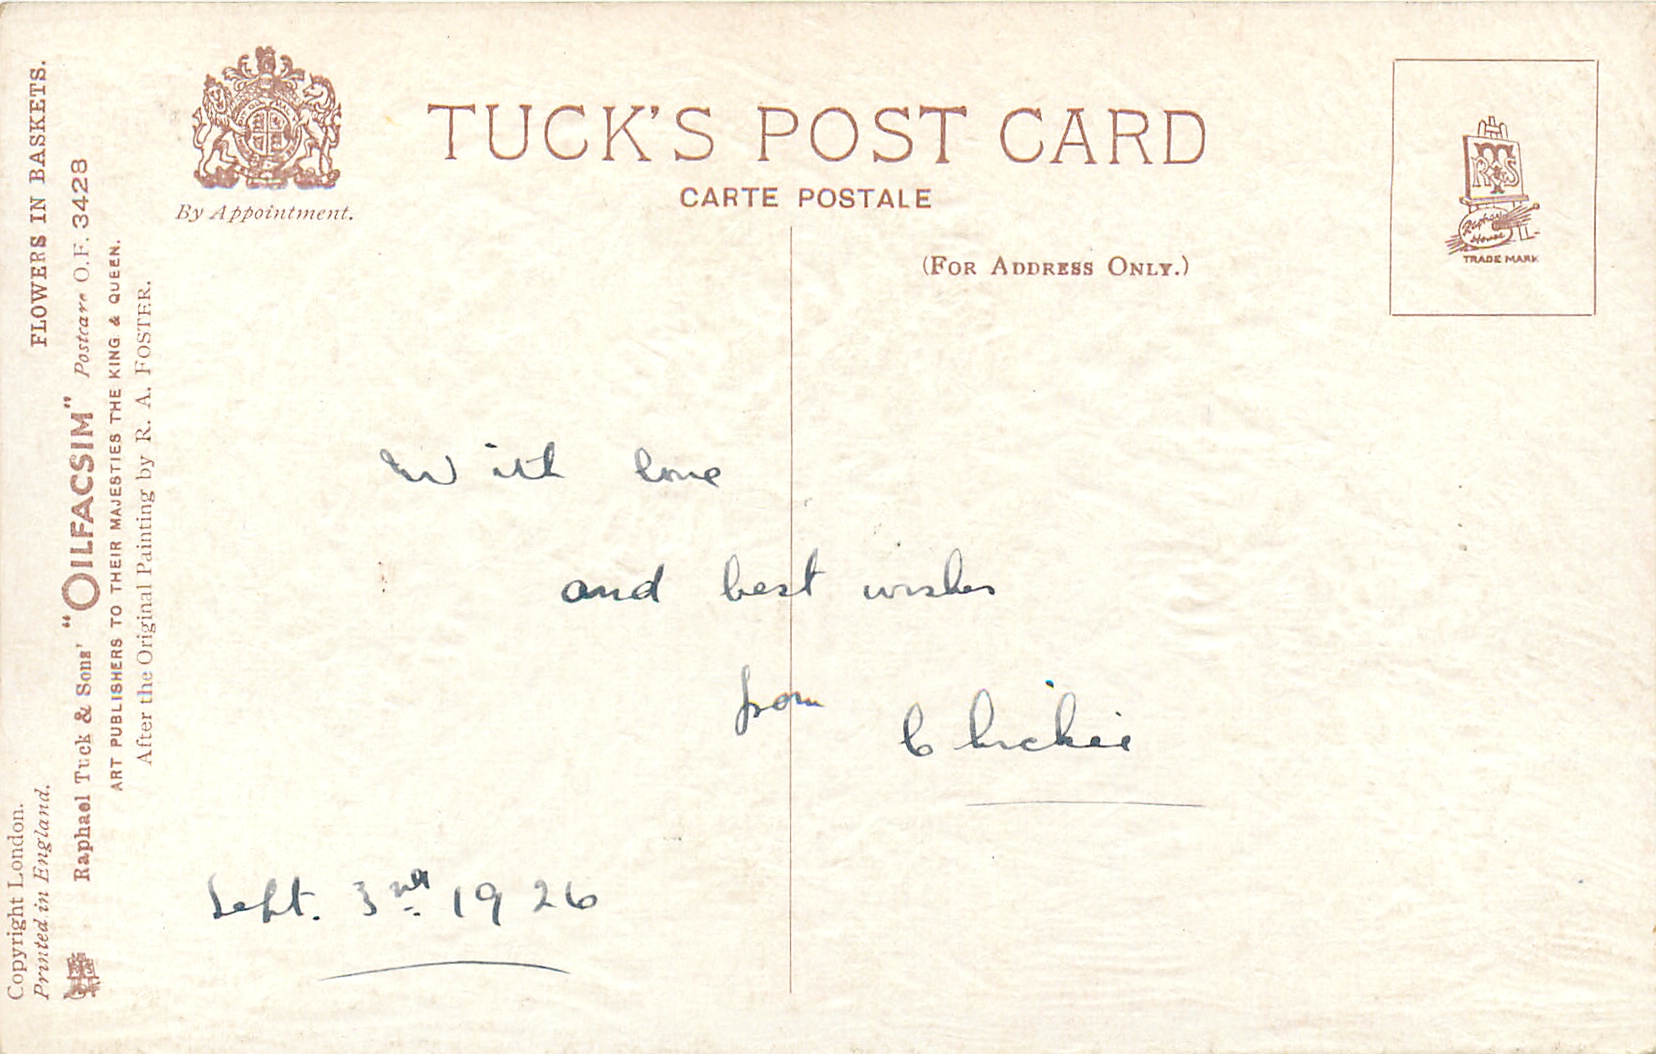 FLOWERS IN BASKETS.
Raphael Tuck & Sons' "OILFACSIM" Postcard O.F. 3428
ART PUBLISHERS TO THEIR MAJESTIES THE KING & QUEEN.
After the Original Painting by R. A. FOSTER.
Copyright London.
Printed in England.
By Appointment.
TUCK'S POST CARD
CARTE POSTALE
(FOR ADDRESS ONLY.)
RTS
Raphael House
TRADE MARK
With love
and best wishes
from Chickie
Sept. 3rd. 1926